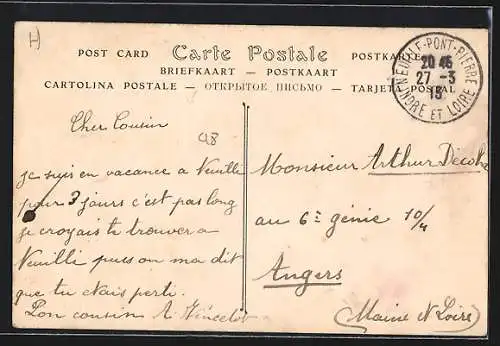 H
POST CARD Carte Postale POSTKARTE
BRIEFKAART - POSTKAART
CARTOLINA POSTALE - ОТКРЫТОЕ ПИСЬМО - TARJETA POSTAL
NEUILLE-PONT-PIERRE
20 45
27 -3
13
INDRE ET LOIRE
Cher Cousin
98
je suis en vacance a Neuilli
pour 3 jours c'est pas long
je croyais te trouver a
Neuilli puis on ma dit
que tu etais parti.
Ton cousin A.
Monsieur Arthur
au 6e génie 10/4
Angers
(Maine et Loire)